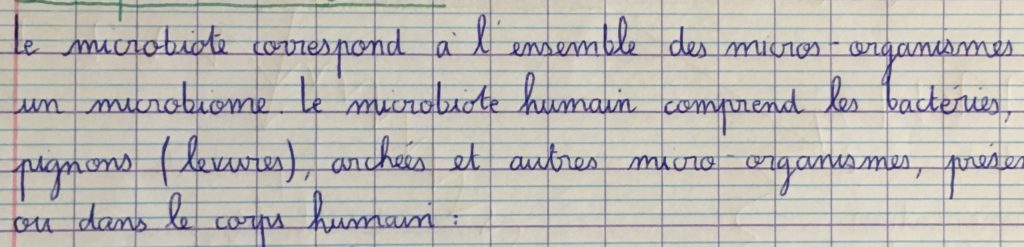 le microbiote correspond à l'ensemble des micros-organismes
un microbiome. Le microbiote humain comprend les bactéries,
pignons (levures), archées et autres micro-organismes, prése
ou dans le corps humain :